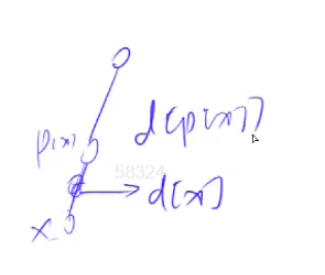 p(x) d[p[x]]
58324
x d[x]